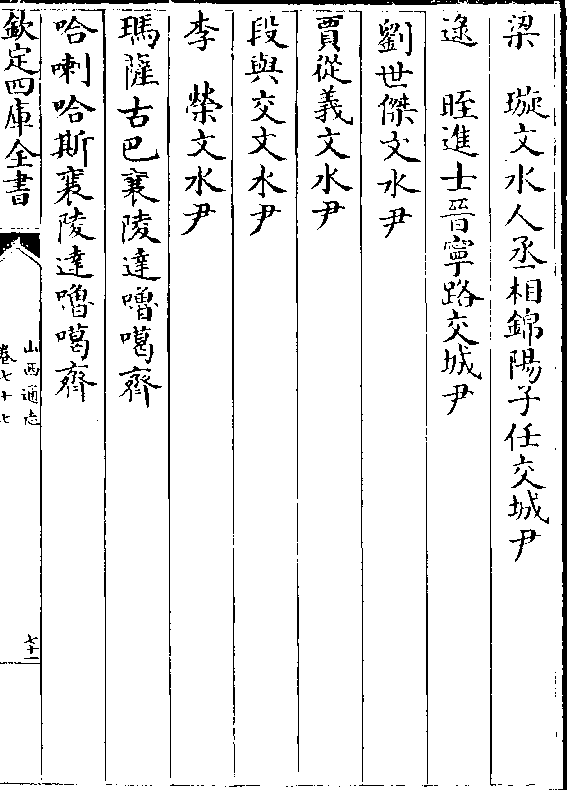 梁　璇文水人丞相錦陽子任交城尹
逯　眰進士晉寧路交城尹
劉世傑文水尹
賈從義文水尹
段與交文水尹
李　榮文水尹
瑪薩古巴襄陵達嚕噶齊
哈喇哈斯襄陵達嚕噶齊
欽定四庫全書
山西通志
卷七十七
七十一